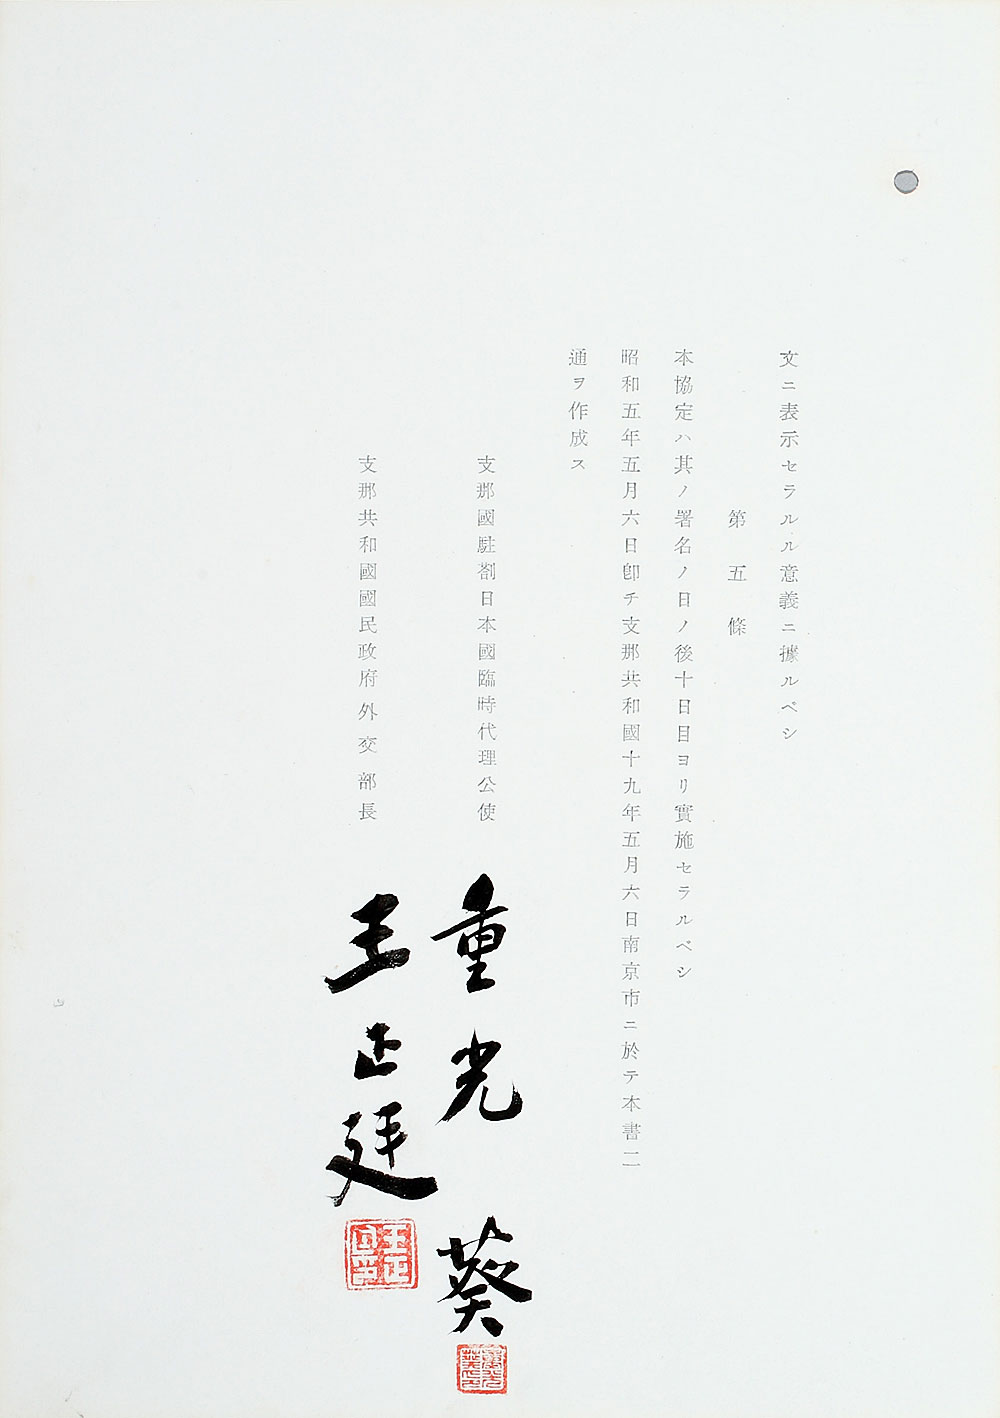 文ニ表示セラルル意義ニ據ルベシ
第五條
本協定ハ其ノ署名ノ日ノ後十日目ヨリ實施セラルベシ
昭和五年五月六日卽チ支那共和國十九年五月六日南京市ニ於テ本書二
通ヲ作成ス
支那國駐劄日本國臨時代理公使
重光葵
支那共和國國民政府外交部長
王正廷